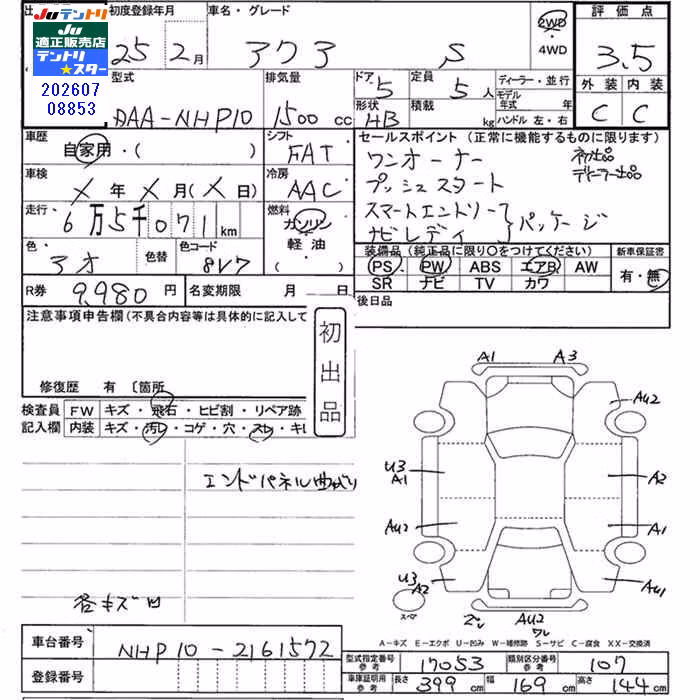 Juテントリ
JU
適正販売店
テントリ
★スター
202607
08853
初度登録年月
25 2月
車名・グレード
アクア S
2WD
4WD
評価点
3.5
外装 内装
C C
型式
DAA-NHP10
排気量
1500 cc
ドア
5
定員
5人
ディーラー・並行
モデル
年式 年
ハンドル 左・右
形状
HB
積載
kg
車歴
自家用・( )
シフト
FAT
セールスポイント (正常に機能するものに限ります)
ワンオーナー
プッシュスタート
スマートエントリー
ナビレディ
パッケージ
初出品
ディーラー出品
車検
X年X月(X日)
冷房
AAC
走行
6万5千071km
燃料
ガソリン
軽油
( )
色
アオ
色替
色コード
8V7
装備品 (純正品に限り○をつけてください)
PS PW ABS エアB AW
SR ナビ TV カワ
新車保証書
有・無
R券 9,980円
名変期限 月 日
後日品
注意事項申告欄(不具合内容等は具体的に記入して
初出品
修復歴 有 〔箇所
検査員
記入欄
FW キズ・飛石・ヒビ割・リペア跡
内装 キズ・汚レ・コゲ・穴・スレ・キレ
エンドパネル曲がり
各キズ凹
A1 A3
AU2
U3
A1
A2
AU2
A1
U3
A2
AU1
スペア
AU2
A-キズ E-エクボ U-凹み W-補修跡 S-サビ C-腐食 XX-交換済
車台番号 NHP10-2161572
登録番号
型式指定番号
参考
17053
類別区分番号
参考
107
車庫証明用
参考
長さ 399 cm 幅 169 cm 高さ 144 cm